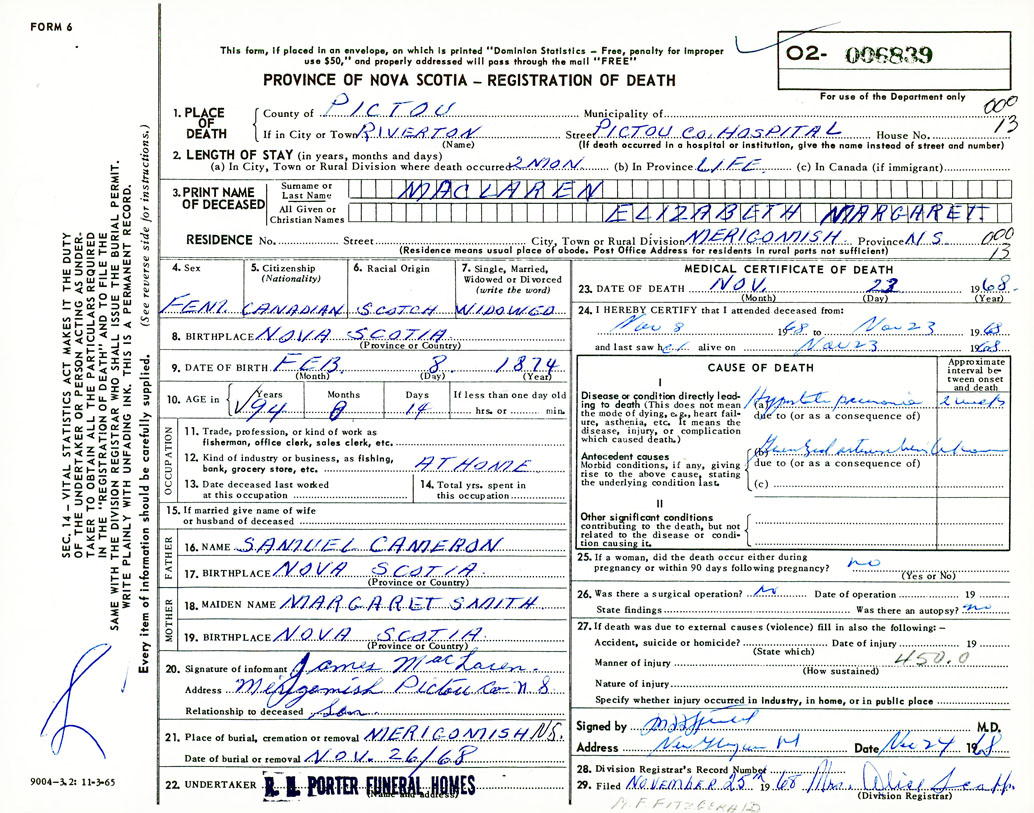 FORM 6
This form, if placed in an envelope, on which is printed "Dominion Statistics – Free, penalty for improper
use $50," and properly addressed will pass through the mail "FREE"
O2- 006839
For use of the Department only
PROVINCE OF NOVA SCOTIA – REGISTRATION OF DEATH
000
13
1. PLACE OF DEATH
County of PICTOU Municipality of
If in City or Town RIVERTON Street PICTOU CO. HOSPITAL House No.
(Name) (If death occurred in a hospital or institution, give the name instead of street and number)
2. LENGTH OF STAY (in years, months and days)
(a) In City, Town or Rural Division where death occurred 2 MON. (b) In Province LIFE (c) In Canada (if immigrant)
3. PRINT NAME OF DECEASED
Surname or Last Name MACLAREN
All Given or Christian Names ELIZABETH MARGARET
RESIDENCE No. Street City, Town or Rural Division MERIGOMISH Province N S.
000
13
(Residence means usual place of abode. Post Office Address for residents in rural parts not sufficient)
4. Sex
FEM.
5. Citizenship (Nationality)
CANADIAN
6. Racial Origin
SCOTCH
7. Single, Married, Widowed or Divorced (write the word)
WIDOWED
8. BIRTHPLACE NOVA SCOTIA
(Province or Country)
9. DATE OF BIRTH FEB. 8. 1874
(Month) (Day) (Year)
10. AGE in Years 94 Months Days 14 If less than one day old
hrs. or min.
OCCUPATION
11. Trade, profession, or kind of work as fisherman, office clerk, sales clerk, etc.
12. Kind of industry or business, as fishing, bank, grocery store, etc. AT HOME
13. Date deceased last worked at this occupation
14. Total yrs. spent in this occupation
15. If married give name of wife or husband of deceased
FATHER
16. NAME SAMUEL CAMERON
17. BIRTHPLACE NOVA SCOTIA.
(Province or Country)
MOTHER
18. MAIDEN NAME MARGARET SMITH
19. BIRTHPLACE NOVA SCOTIA.
(Province or Country)
20. Signature of informant James MacLaren.
Address Merigomish Pictou Co N.S
Relationship to deceased Son
21. Place of burial, cremation or removal MERIGOMISH N.S.
Date of burial or removal NOV. 26/68
22. UNDERTAKER PORTER FUNERAL HOMES
(Name and address)
MEDICAL CERTIFICATE OF DEATH
23. DATE OF DEATH NOV. 23 1968.
(Month) (Day) (Year)
24. I HEREBY CERTIFY that I attended deceased from:
Nov 8 1968 to Nov 23 1968
and last saw her alive on Nov 23 1968
CAUSE OF DEATH
Approximate interval between onset and death
I
Disease or condition directly leading to death (This does not mean the mode of dying, e.g., heart failure, asthenia, etc. It means the disease, injury, or complication which caused death.)
(a) Hypostatic pneumonia 2 weeks
due to (or as a consequence of)
Antecedent causes
Morbid conditions, if any, giving rise to the above cause, stating the underlying condition last.
(b)
due to (or as a consequence of)
(c)
II
Other significant conditions contributing to the death, but not related to the disease or condition causing it.
25. If a woman, did the death occur either during pregnancy or within 90 days following pregnancy? no
(Yes or No)
26. Was there a surgical operation? no Date of operation 19
State findings Was there an autopsy? no
27. If death was due to external causes (violence) fill in also the following: –
Accident, suicide or homicide? Date of injury 19
(State which)
Manner of injury 450.0
(How sustained)
Nature of injury
Specify whether injury occurred in industry, in home, or in public place
Signed by M.D.
Address Date Nov 24 1968
28. Division Registrar's Record Number
29. Filed NOVEMBER 25th 1968 Mrs. Alice
(Division Registrar)
M. F. FITZGERALD
SEC. 14 – VITAL STATISTICS ACT MAKES IT THE DUTY
OF THE UNDERTAKER OR PERSON ACTING AS UNDER-
TAKER TO OBTAIN ALL THE PARTICULARS REQUIRED
IN THE "REGISTRATION OF DEATH" AND TO FILE THE
SAME WITH THE DIVISION REGISTRAR WHO SHALL ISSUE THE BURIAL PERMIT.
WRITE PLAINLY WITH UNFADING INK. THIS IS A PERMANENT RECORD.
Every item of information should be carefully supplied. (See reverse side for instructions.)
9004-3.2: 11-3-65